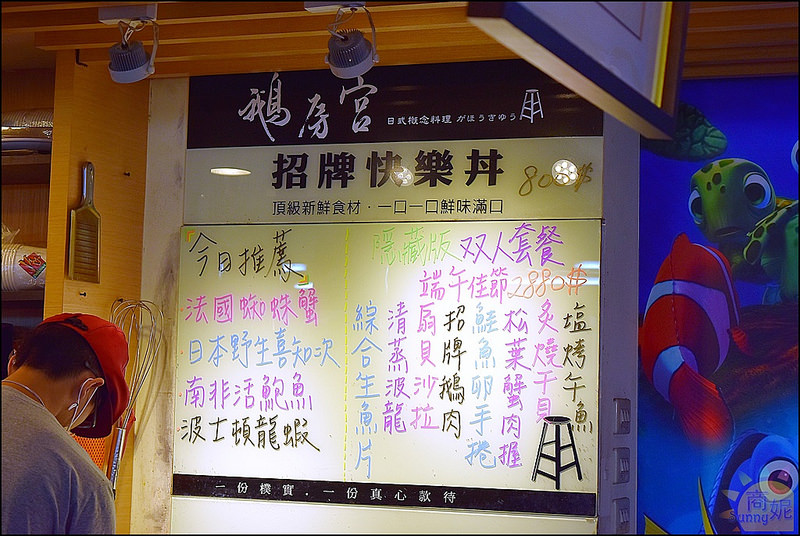 鵝房宮
日式概念料理 がほうきゅう
招牌快樂丼 800$
頂級新鮮食材·一口一口鮮味滿口
今日推薦
法國蜘蛛蟹
日本野生喜知次
南非活鮑魚
波士頓龍蝦
隱藏版双人套餐
端午佳節2880$
塩烤午魚
炙燒干貝
松葉蟹肉握
鮭魚卵手捲
招牌鵝肉
扇貝沙拉
清蒸波龍
綜合生魚片
一份樸實·一份真心款待
商妮
Sunny